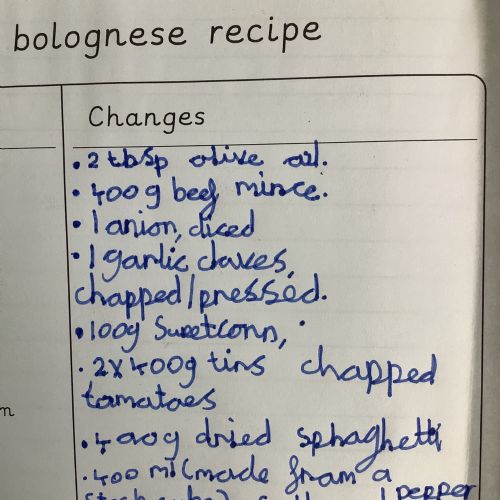 bolognese recipe
Changes
• 2 tbsp olive oil.
• 400g beef mince.
• 1 onion, diced
• 1 garlic cloves,
chopped/pressed.
• 100g Sweetconn,
• 2x400g tins chopped
tomatoes
• 400g dried sphaghetti
• 400 ml (made from a
pepper